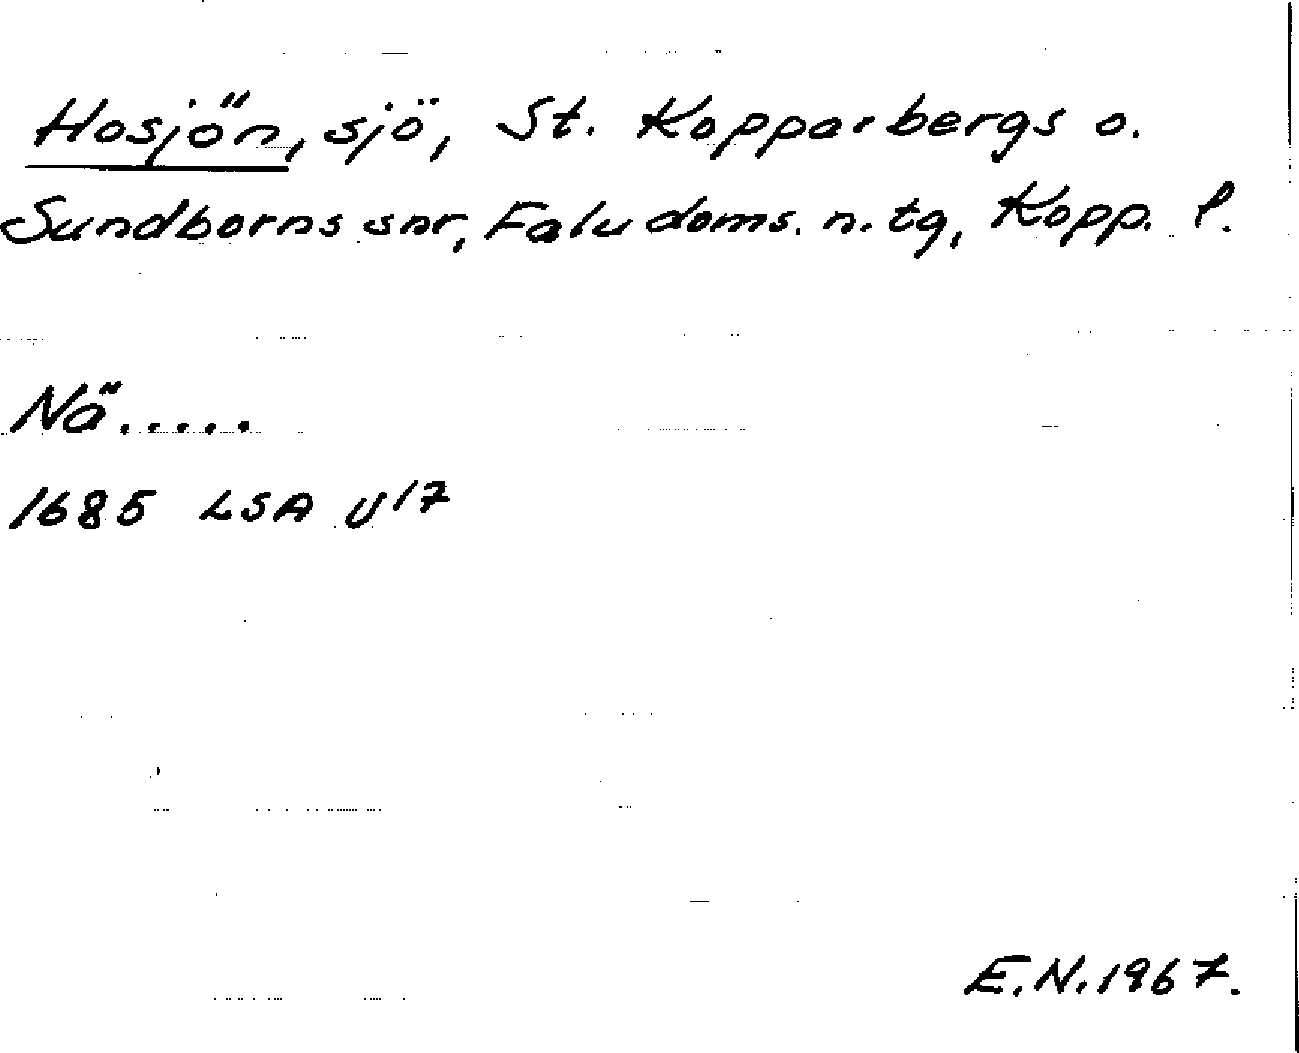 Hosjön, sjö, St. Kopparbergs o.
Sundborns snr, Falu doms. n. tg, Kopp. l.
Nä.....
1685 LSA U17
E.N. 1967.